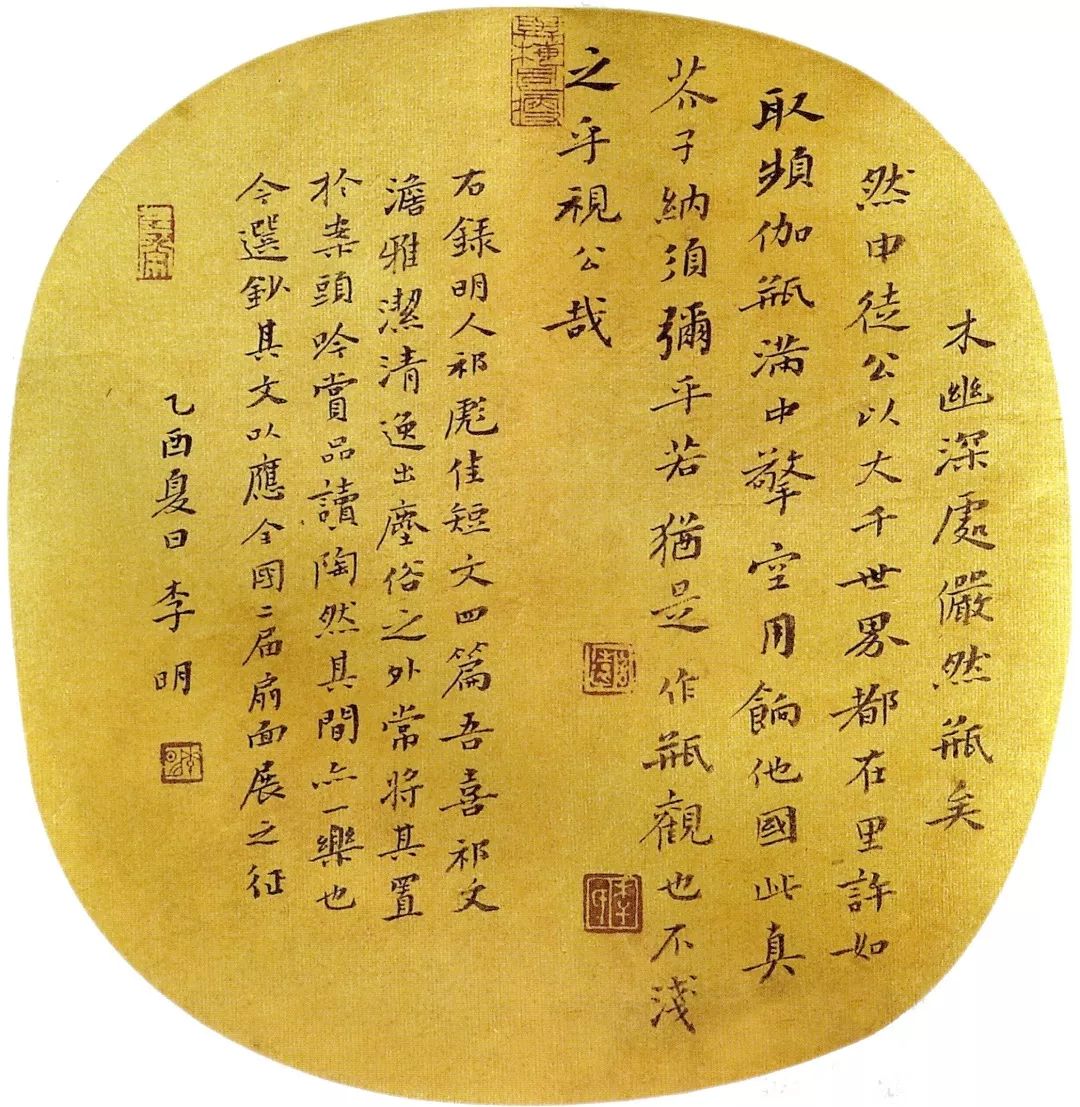 木幽深處儼然瓶矣
然申徒公以大千世界都在里許如
取頻伽瓶滿中擎空用餉他國此真
芥子納須彌乎若猶是作瓶觀也不淺
之乎視公哉
右錄明人祁彪佳短文四篇吾喜祁文
澹雅潔清逸出塵俗之外常將其置
於案頭吟賞品讀陶然其間亦一樂也
今選鈔其文以應全國二届扇面展之征
乙酉夏日李明